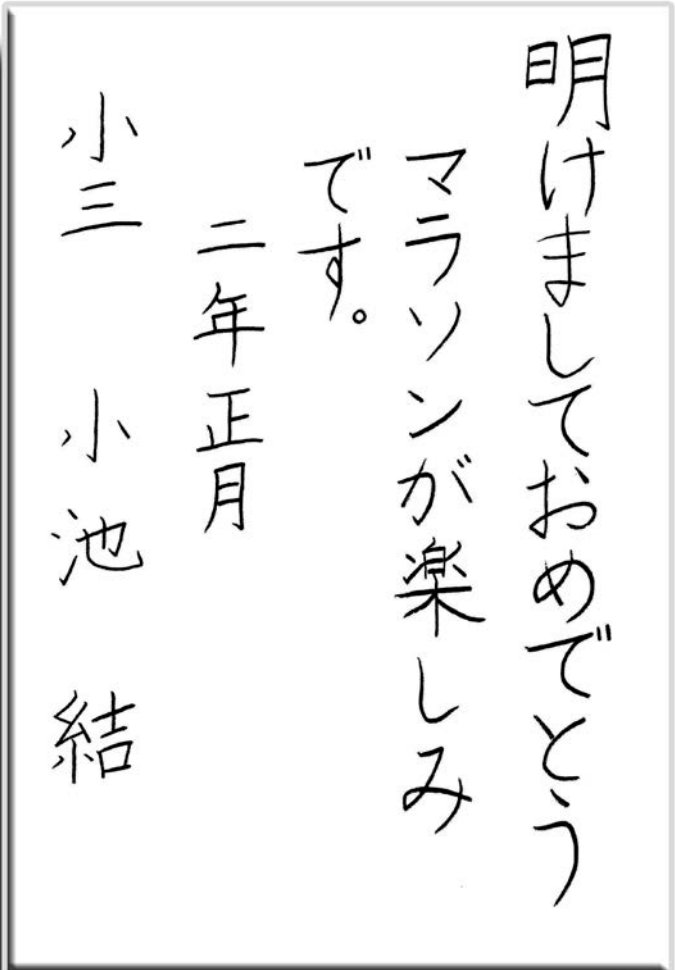 明けましておめでとう
マラソンが楽しみ
です。
二年正月
小三 小池 結